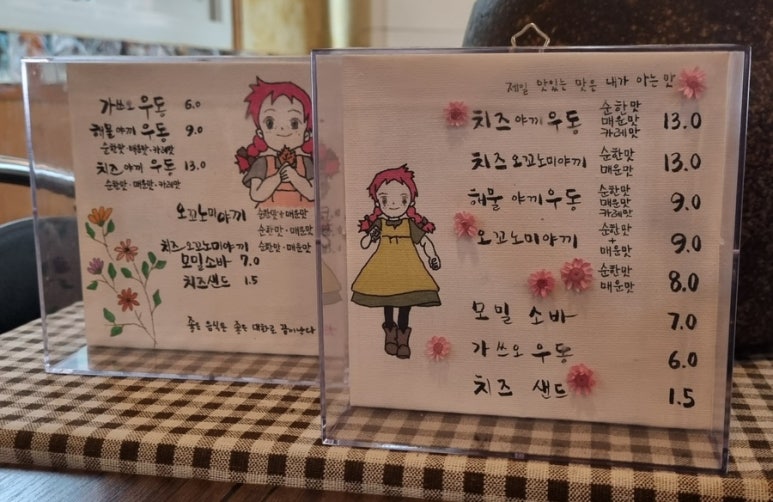 가쓰오 우동 6.0
해물 야끼 우동 9.0
순한맛·매운맛·카레맛
치즈 야끼 우동 13.0
순한맛·매운맛·카레맛
오꼬노미야끼 순한맛+매운맛
순한맛·매운맛
치즈 오꼬노미야끼 순한맛·매운맛
모밀소바 7.0
치즈샌드 1.5
좋은 음식은 좋은 대화로 끝이난다
제일 맛있는 맛은 내가 아는 맛
치즈 야끼 우동 순한맛 매운맛 카레맛 13.0
치즈 오꼬노미야끼 순한맛 매운맛 13.0
해물 야끼 우동 순한맛 매운맛 카레맛 9.0
오꼬노미야끼 순한맛 + 매운맛 9.0
순한맛 매운맛 8.0
모밀 소바 7.0
가쓰오 우동 6.0
치즈 샌드 1.5